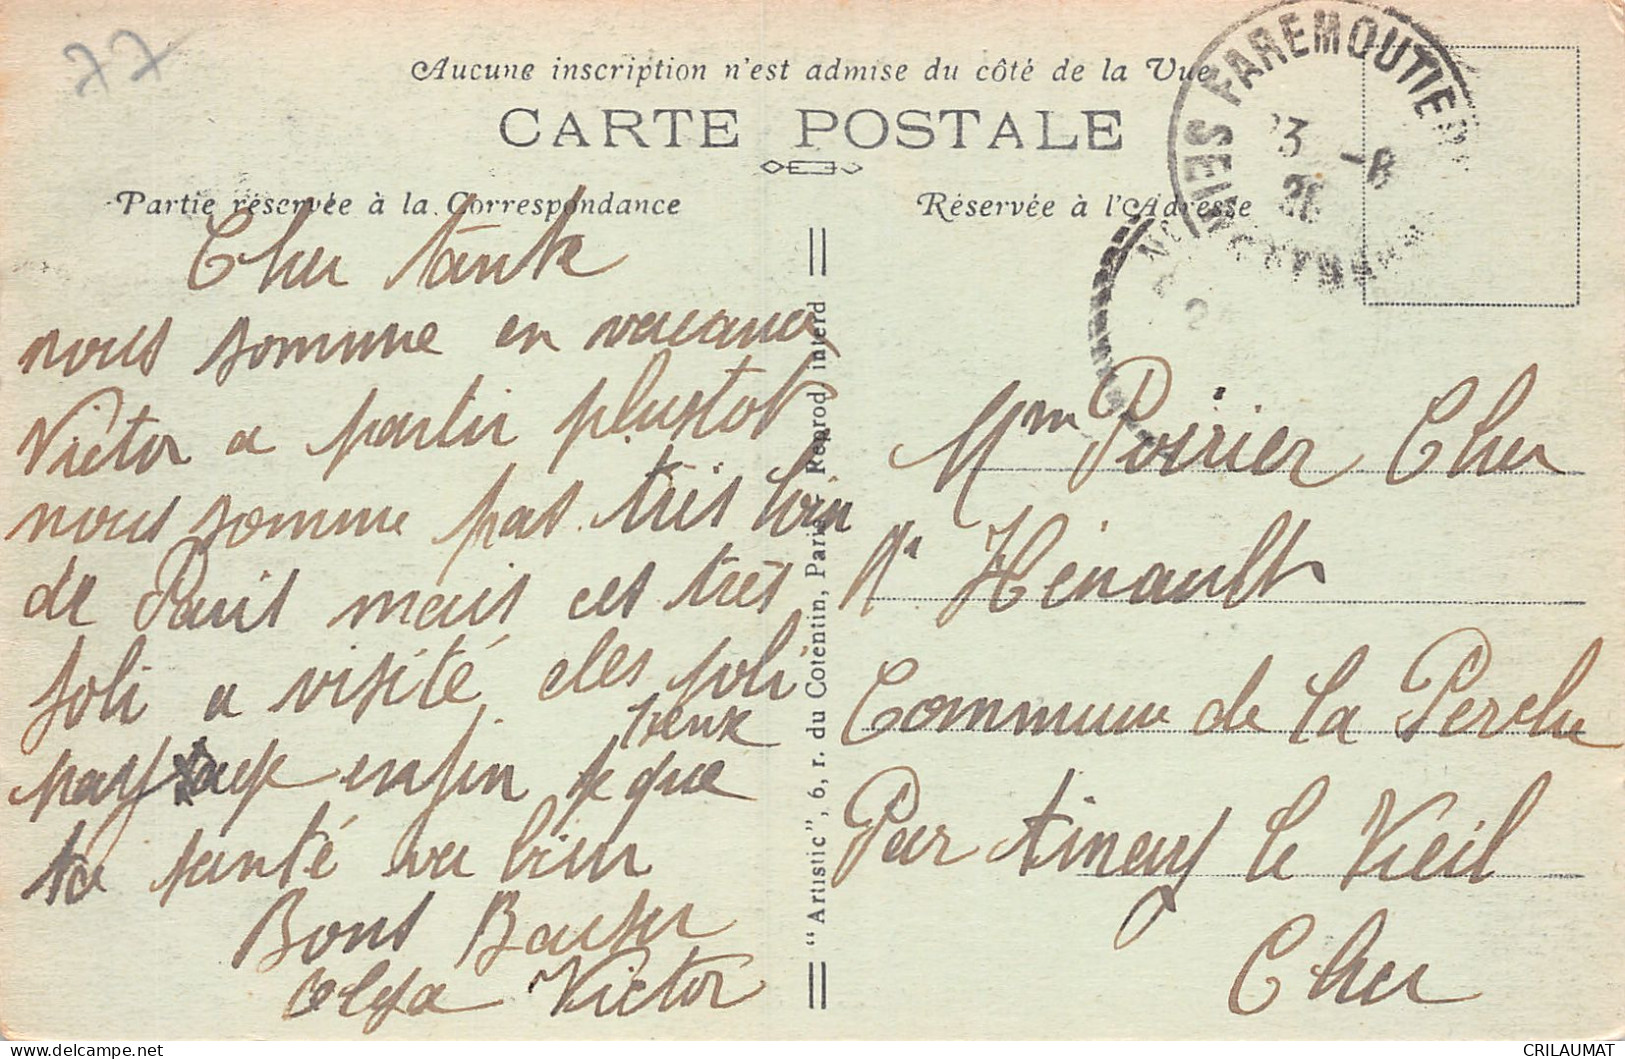 77
Aucune inscription n'est admise du côté de la Vue
CARTE POSTALE
Partie réservée à la Correspondance
Réservée à l'Adresse
FAREMOUTIERS
SEINE
Cher tante
nous somme en vacance
Victor a partir plustot
nous somme pas très loin
de Paris mais ces très
joli a visité des joli
paysage enfin je veux que
ta santé va bien
Bons Baiser
Olga Victor
"Artistic", 6, r. du Cotentin, Paris Reprod. interd
Mme Poirier Cher
Mr Hénault
Commune de la Perche
Par Ainay le Vieil
Cher
CRILAUMAT